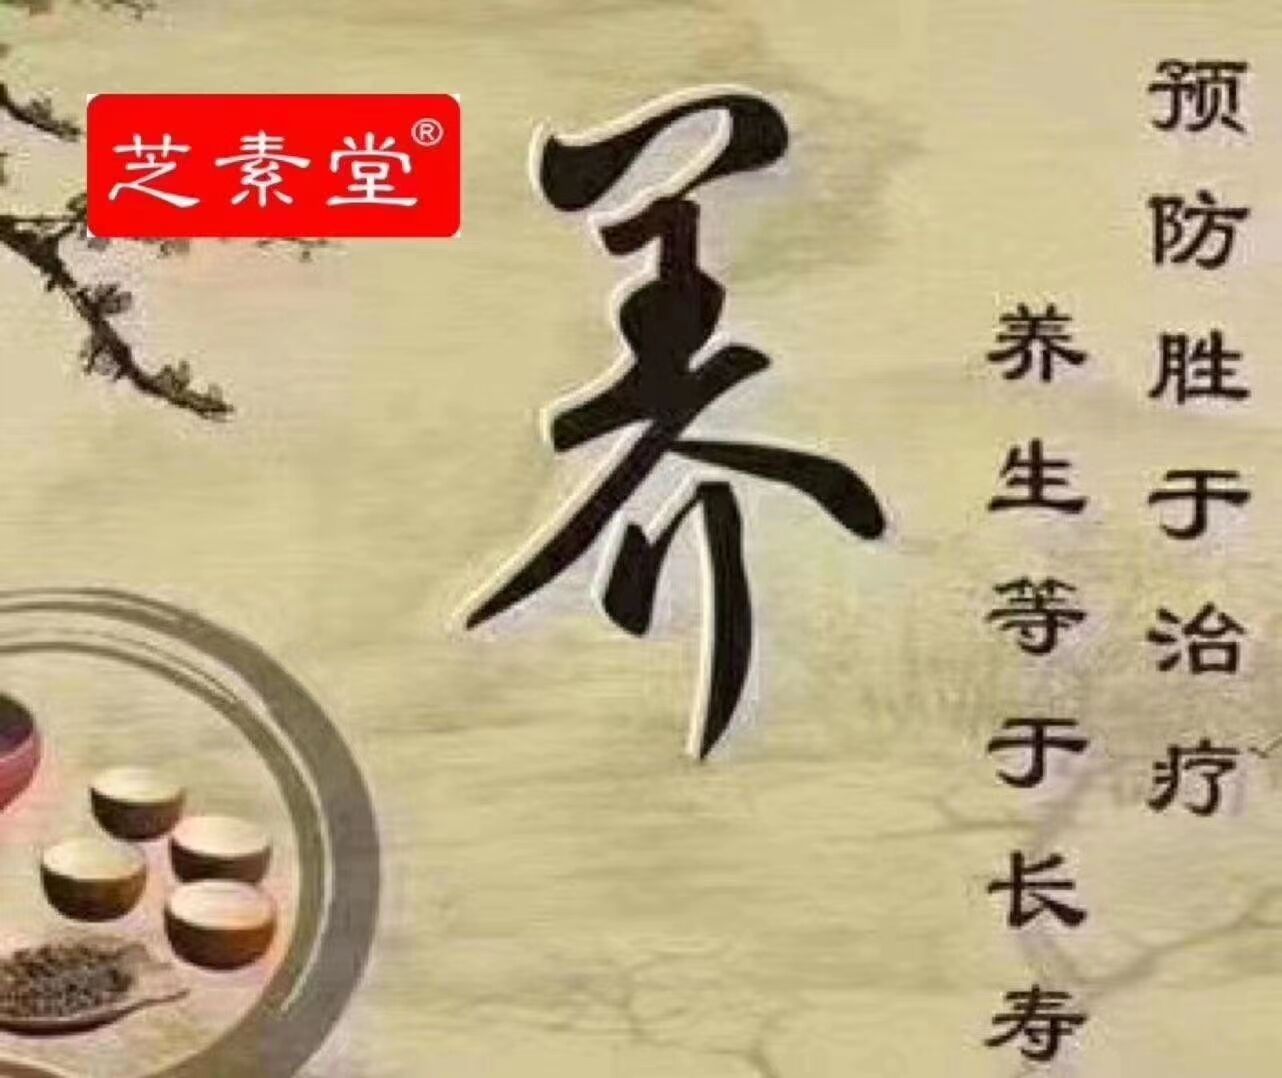 芝素堂®
养
预防胜于治疗
养生等于长寿